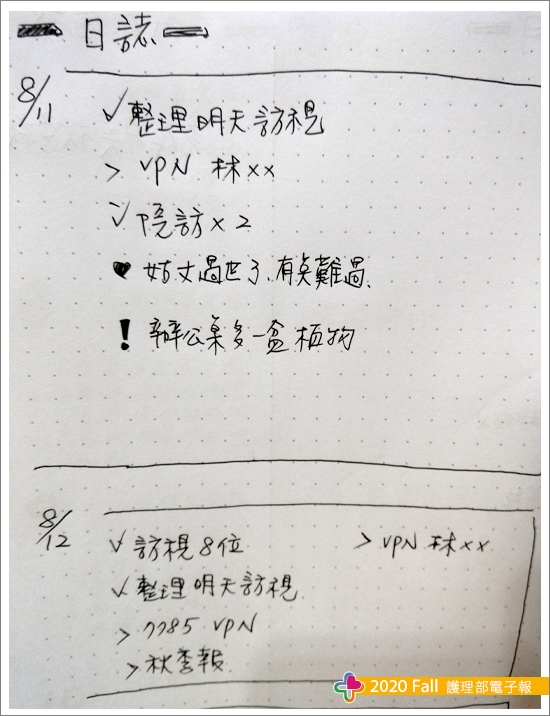 日誌
8/11
✓ 整理明天訪視
> VPN 林xx
✓ 院訪 x 2
♥ 姑丈過世了、有点難過、
! 辦公桌多一盆植物
8/12
✓ 訪視8位
> VPN 林xx
✓ 整理明天訪視
> 7785 VPN
> 秋季報
2020 Fall 護理部電子報